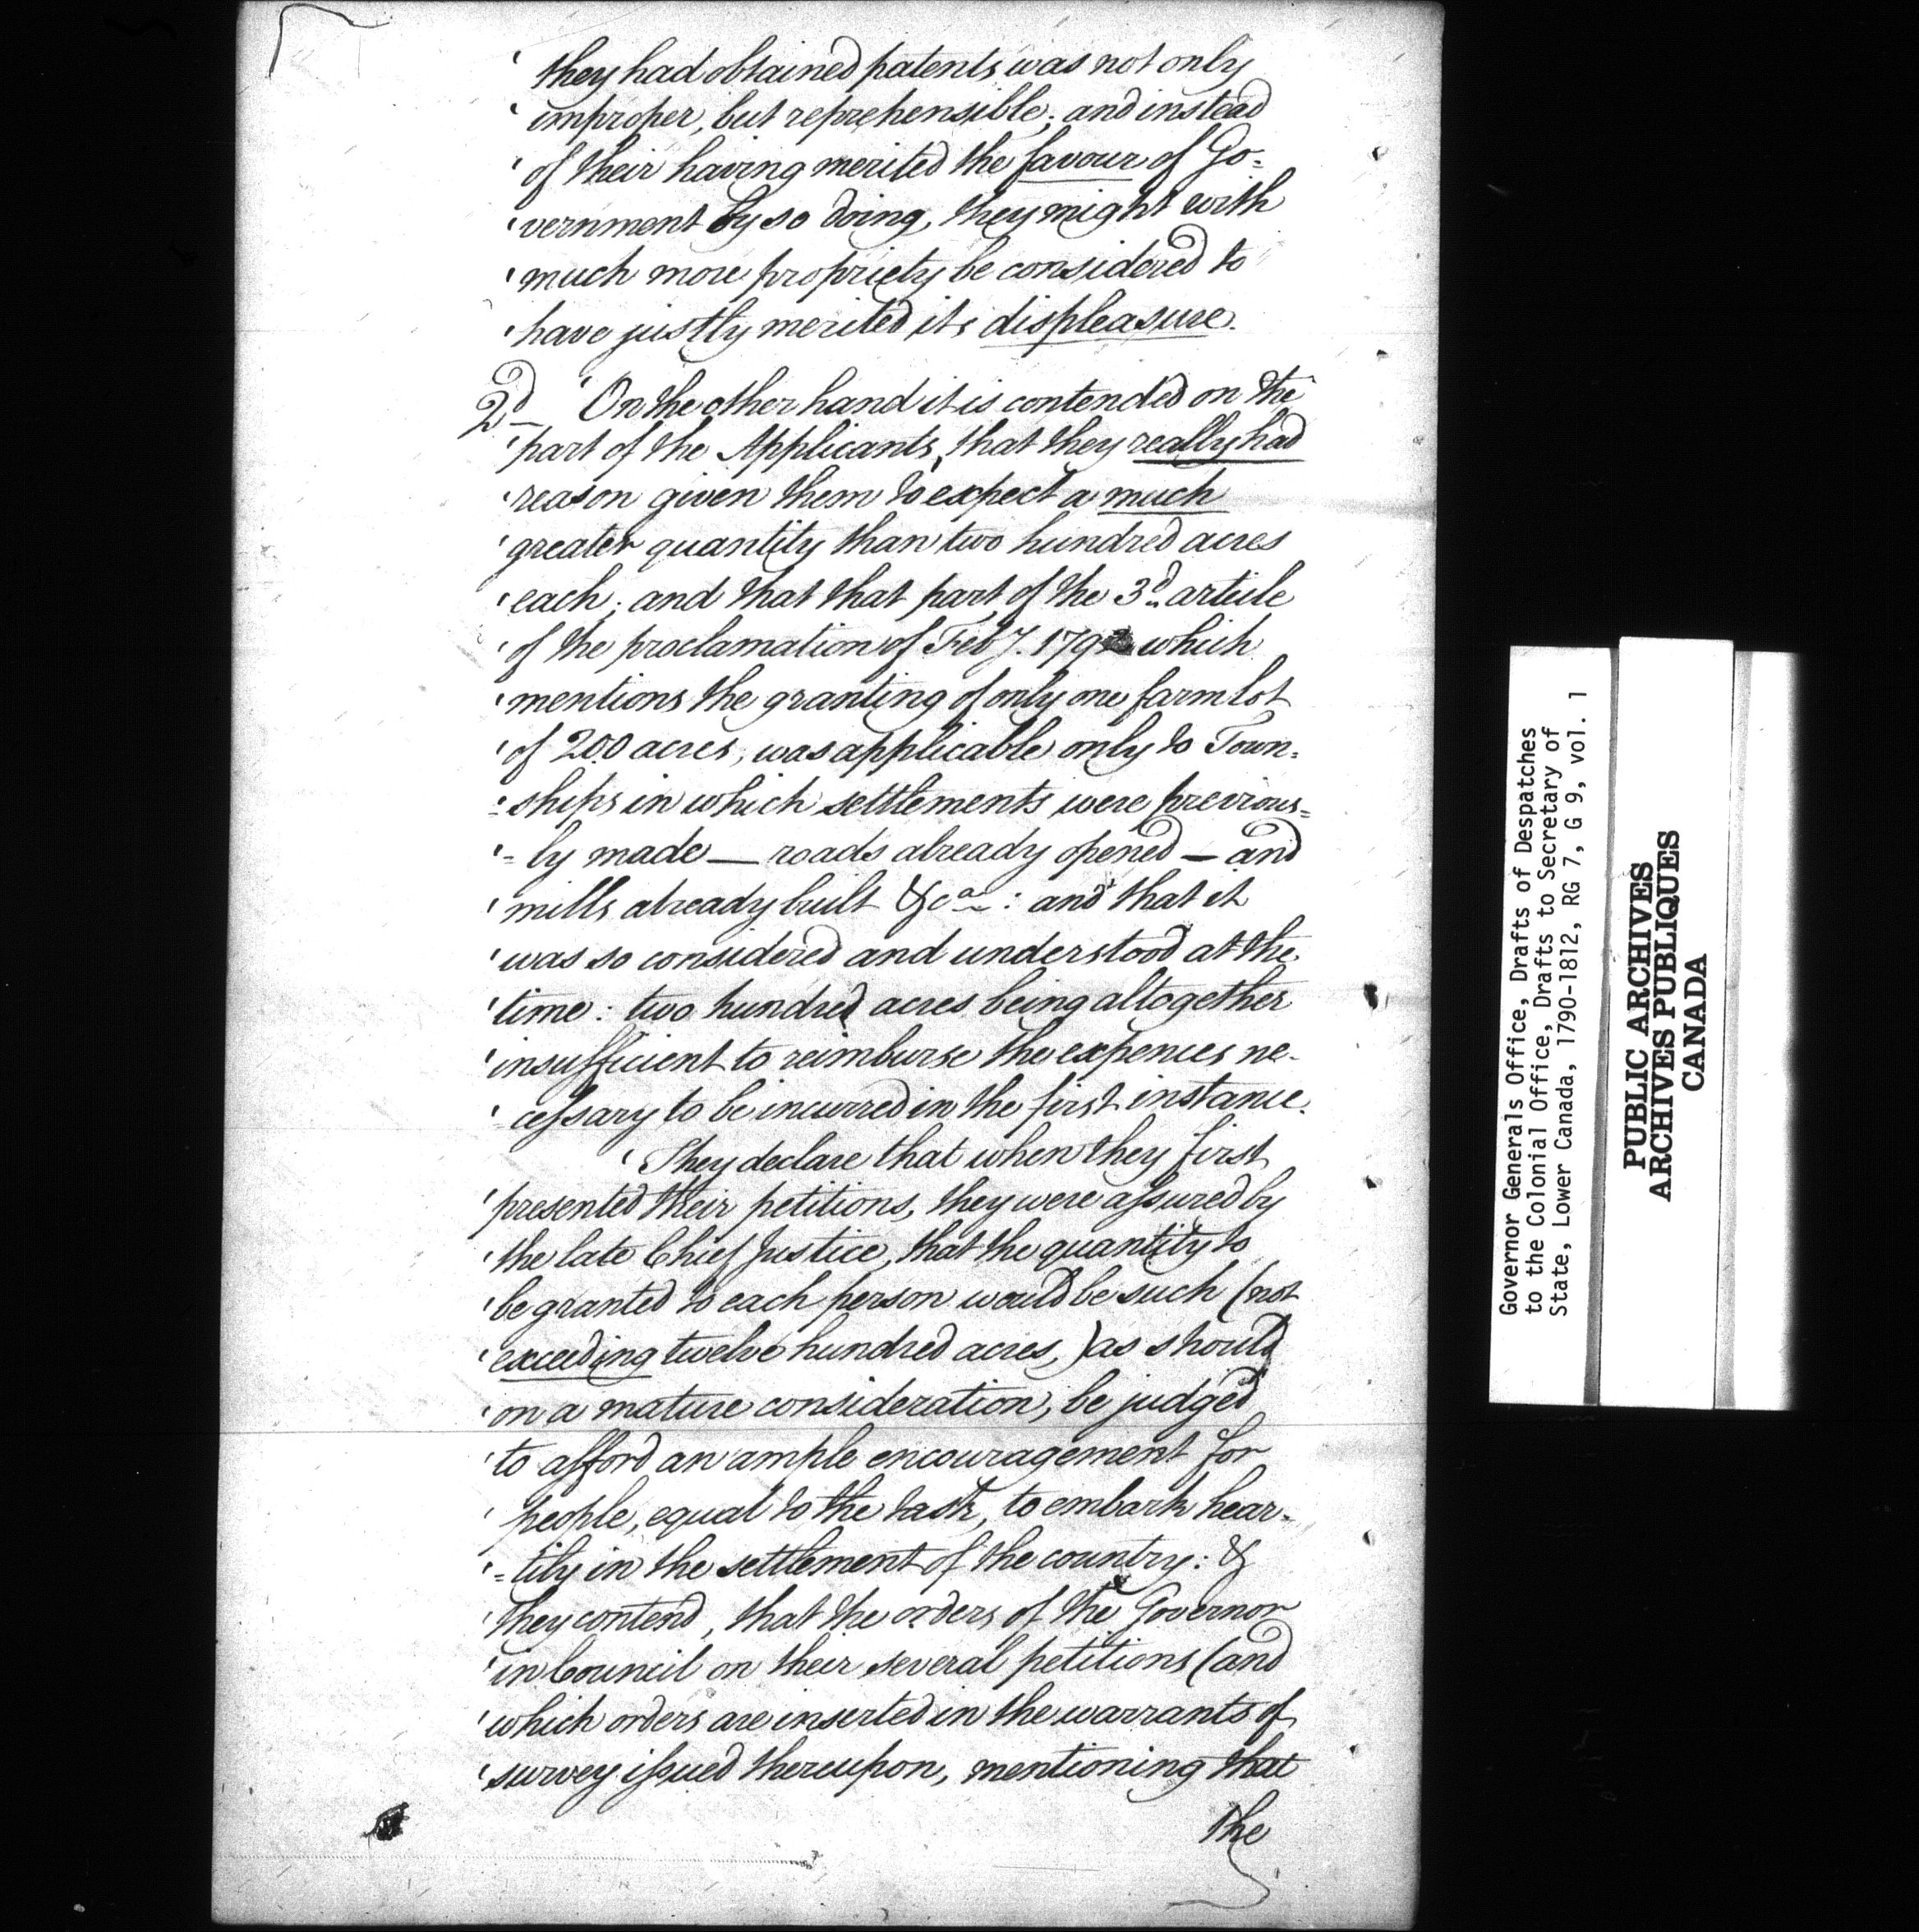 ' they had obtained patents was not only
' improper, but reprehensible; and instead
' of their having merited the favour of Go=
' vernment by so doing, they might with
' much more propriety be considered to
' have justly merited its displeasure.
2d_ ' On the other hand it is contended on the
' part of the Applicants, that they really had
' reason given them to expect a much
' greater quantity than two hundred acres
' each; and that that part of the 3d article
' of the proclamation of Feby. 1792 which
' mentions the granting of only one farm lot
' of 200 acres, was applicable only to Town=
'=ships in which settlements were previous=
'=ly made — roads already opened — and
' mills already built &ca: and that it
' was so considered and understood at the
' time: two hundred acres being altogether
' insufficient to reimburse the expences ne-
' cessary to be incurred in the first instance.
' They declare that when they first
' presented their petitions, they were assured by
' the late Chief Justice, that the quantity to
' be granted to each person would be such (not
' exceeding twelve hundred acres,) as should
' on a mature consideration, be judged
' to afford an ample encouragement for
' people, equal to the task, to embark hear-
'=tily in the settlement of the country: &
' they contend, that the orders of the Governor
' in Council on their several petitions (and
' which orders are inserted in the warrants of
' survey issued thereupon, mentioning that
the
Governor Generals Office, Drafts of Despatches
to the Colonial Office, Drafts to Secretary of
State, Lower Canada, 1790-1812, RG 7, G 9, vol. 1
PUBLIC ARCHIVES
ARCHIVES PUBLIQUES
CANADA